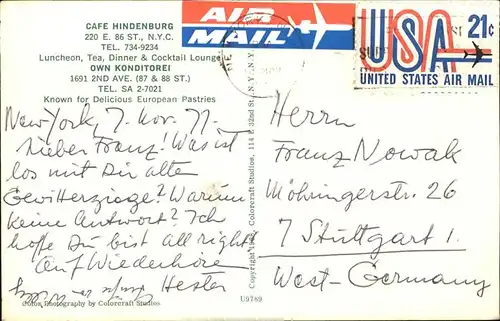 CAFE HINDENBURG
220 E. 86 ST., N.Y.C.
TEL. 734-9234
Luncheon, Tea, Dinner & Cocktail Lounge
OWN KONDITOREI
1691 2ND AVE. (87 & 88 ST.)
TEL. SA 2-7021
Known for Delicious European Pastries
AIR
MAIL
USA 21¢
UNITED STATES AIR MAIL
New York, 7. Nov. 77.
Lieber Franz! Was ist
los mit Dir alte
Gewitterziege? Warum
keine Antwort? Ich
hoffe Du bist All right!
Auf Wiederhören
Hester
Color Photography by Colorcraft Studios
Colorcraft Studios, 114 E 32nd St. N.Y.
U9789
Herrn
Franz Nowak
Möhringerstr. 26
7 Stuttgart 1.
West-Germany